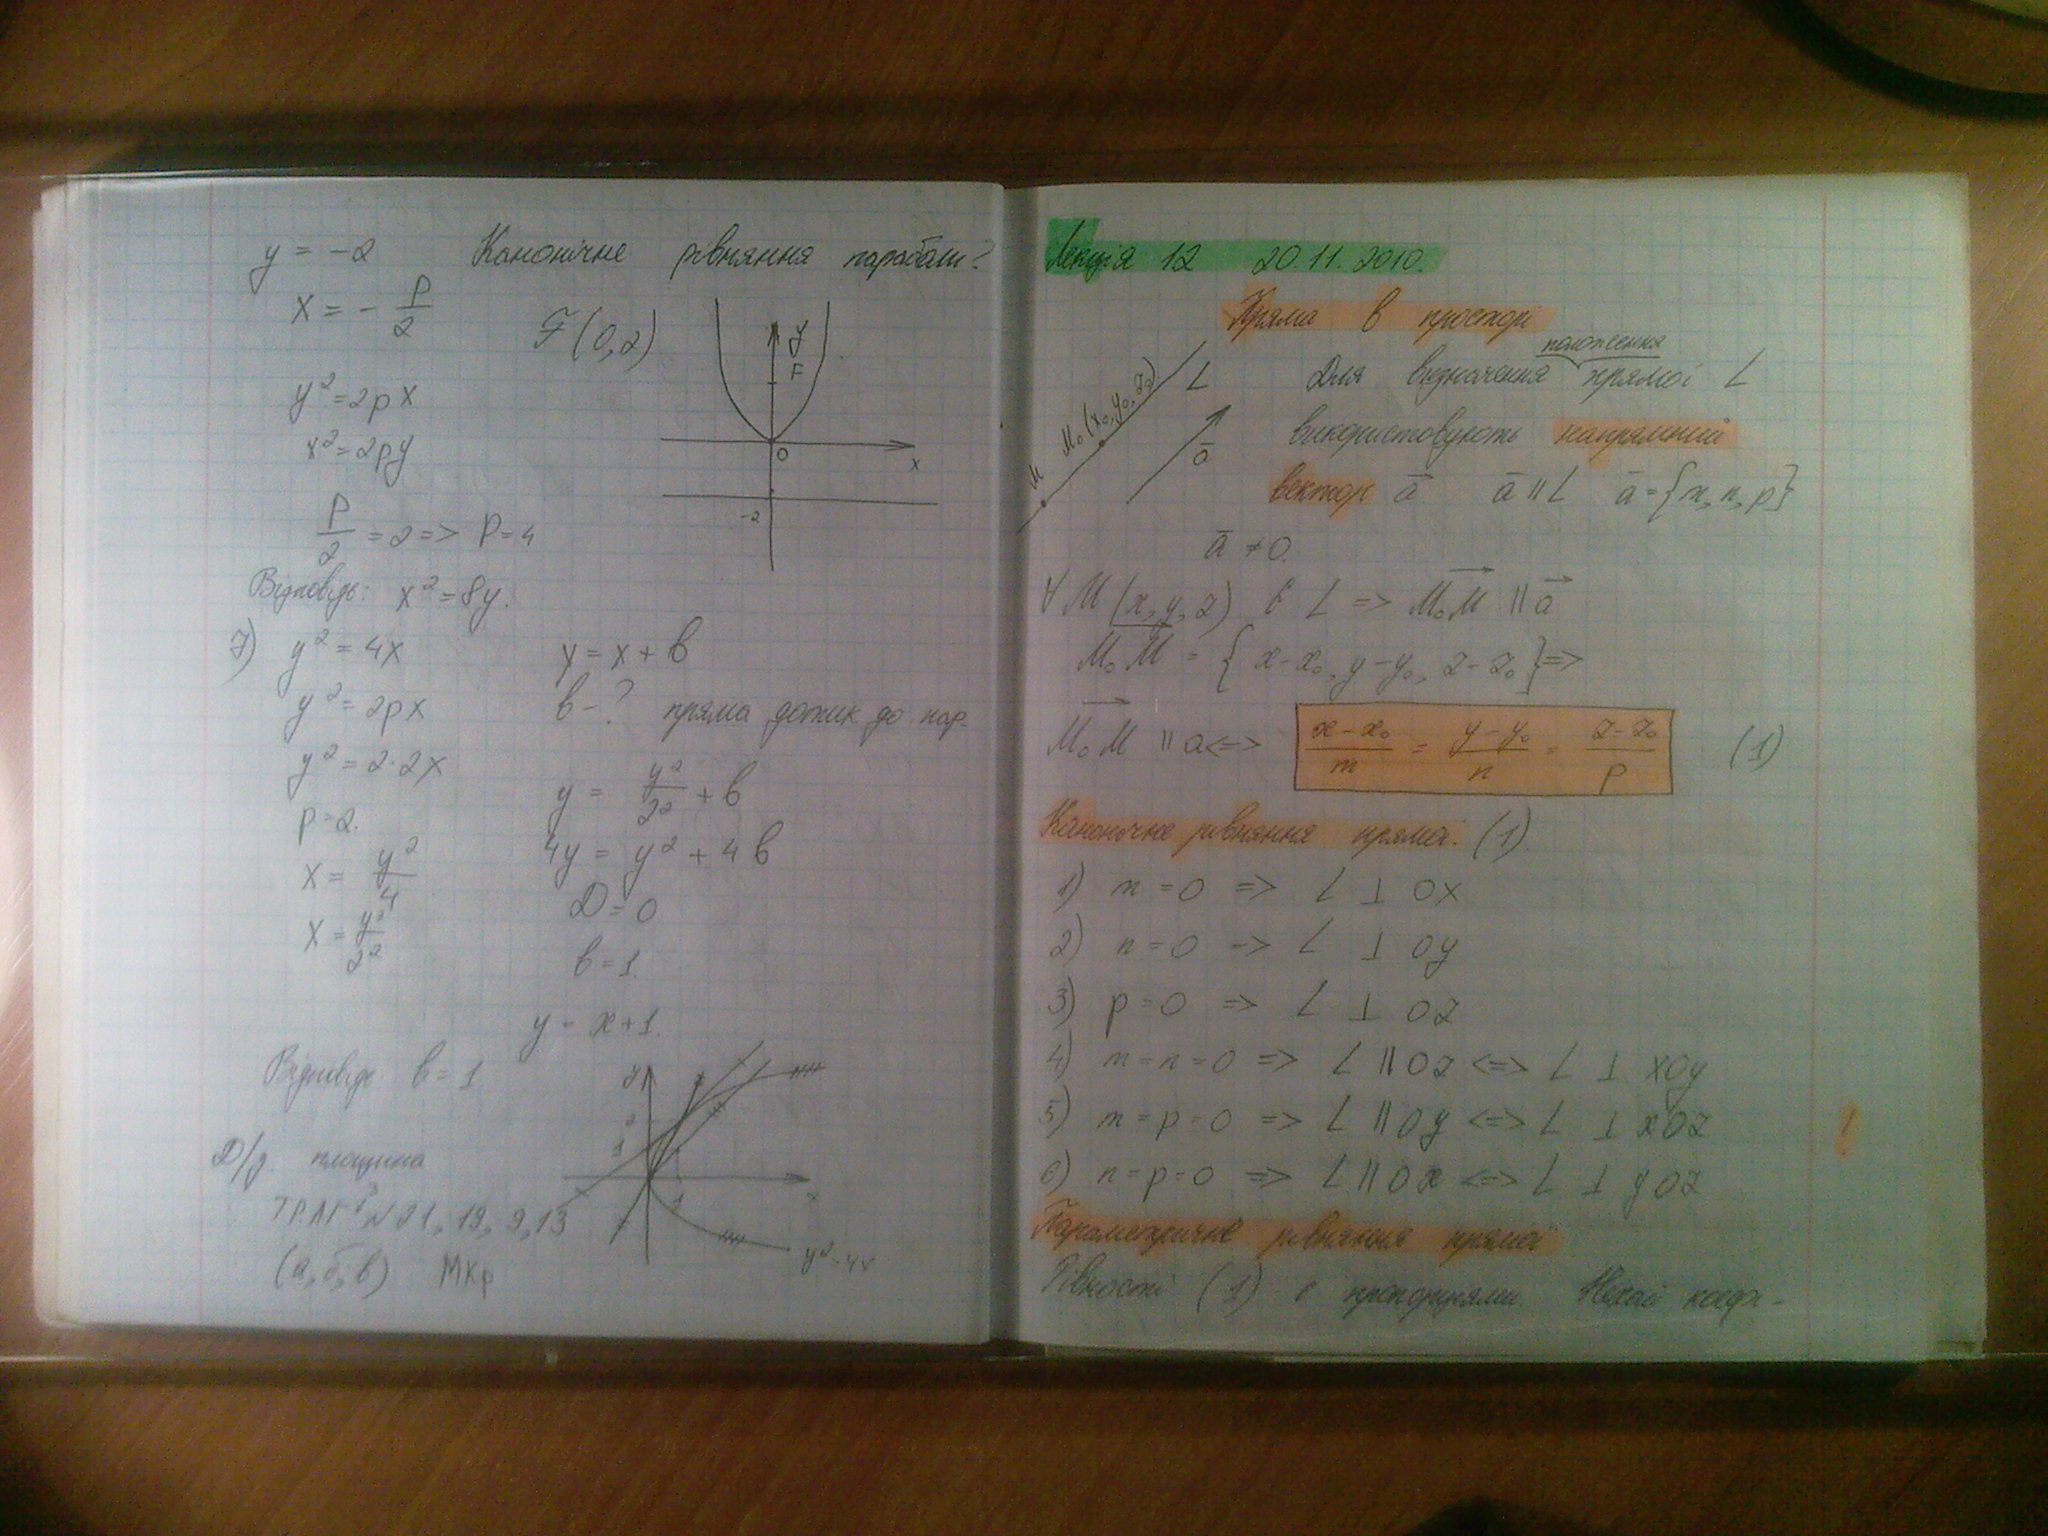 y = -2 Канонічне рівняння параболи?
x = - p/2
F(0,2)
y² = 2px
x² = 2py
p/2 = 2 => p = 4
y
F
0
x
-2
Відповідь: x² = 8y.
7) y² = 4x y = x + b
y² = 2px b - ? пряма дотик до пар.
y² = 2·2x y = y²/2² + b
p = 2. 4y = y² + 4b
x = y²/4 D = 0
x = y²/2² b = 1.
y = x + 1.
Відповідь: b = 1
y
2
1
1
x
y² = 4x
Д/з площина
N 21, 19, 9, 13
(а, б, в) МКр
Лекція 12 20.11.2010.
Пряма в просторі
L
M M₀(x₀, y₀, z₀)
a̅
положення
Для визначення прямої L
використовують напрямний
вектор a̅ a̅ || L a̅ = {m, n, p}
a̅ ≠ 0.
∀ M (x, y, z) ∈ L => M₀M || a
M₀M = { x - x₀, y - y₀, z - z₀ } =>
M₀M || a <=> (x - x₀)/m = (y - y₀)/n = (z - z₀)/p (1)
Канонічне рівняння прямої. (1).
1) m = 0 => L ⊥ OX
2) n = 0 => L ⊥ Oy
3) p = 0 => L ⊥ OZ
4) m = n = 0 => L || OZ <=> L ⊥ XOy
5) m = p = 0 => L || Oy <=> L ⊥ XOZ
6) n = p = 0 => L || Ox <=> L ⊥ yOZ
!
Параметричне рівняння прямої
Рівності (1) є пропорціями. Нехай коефі-